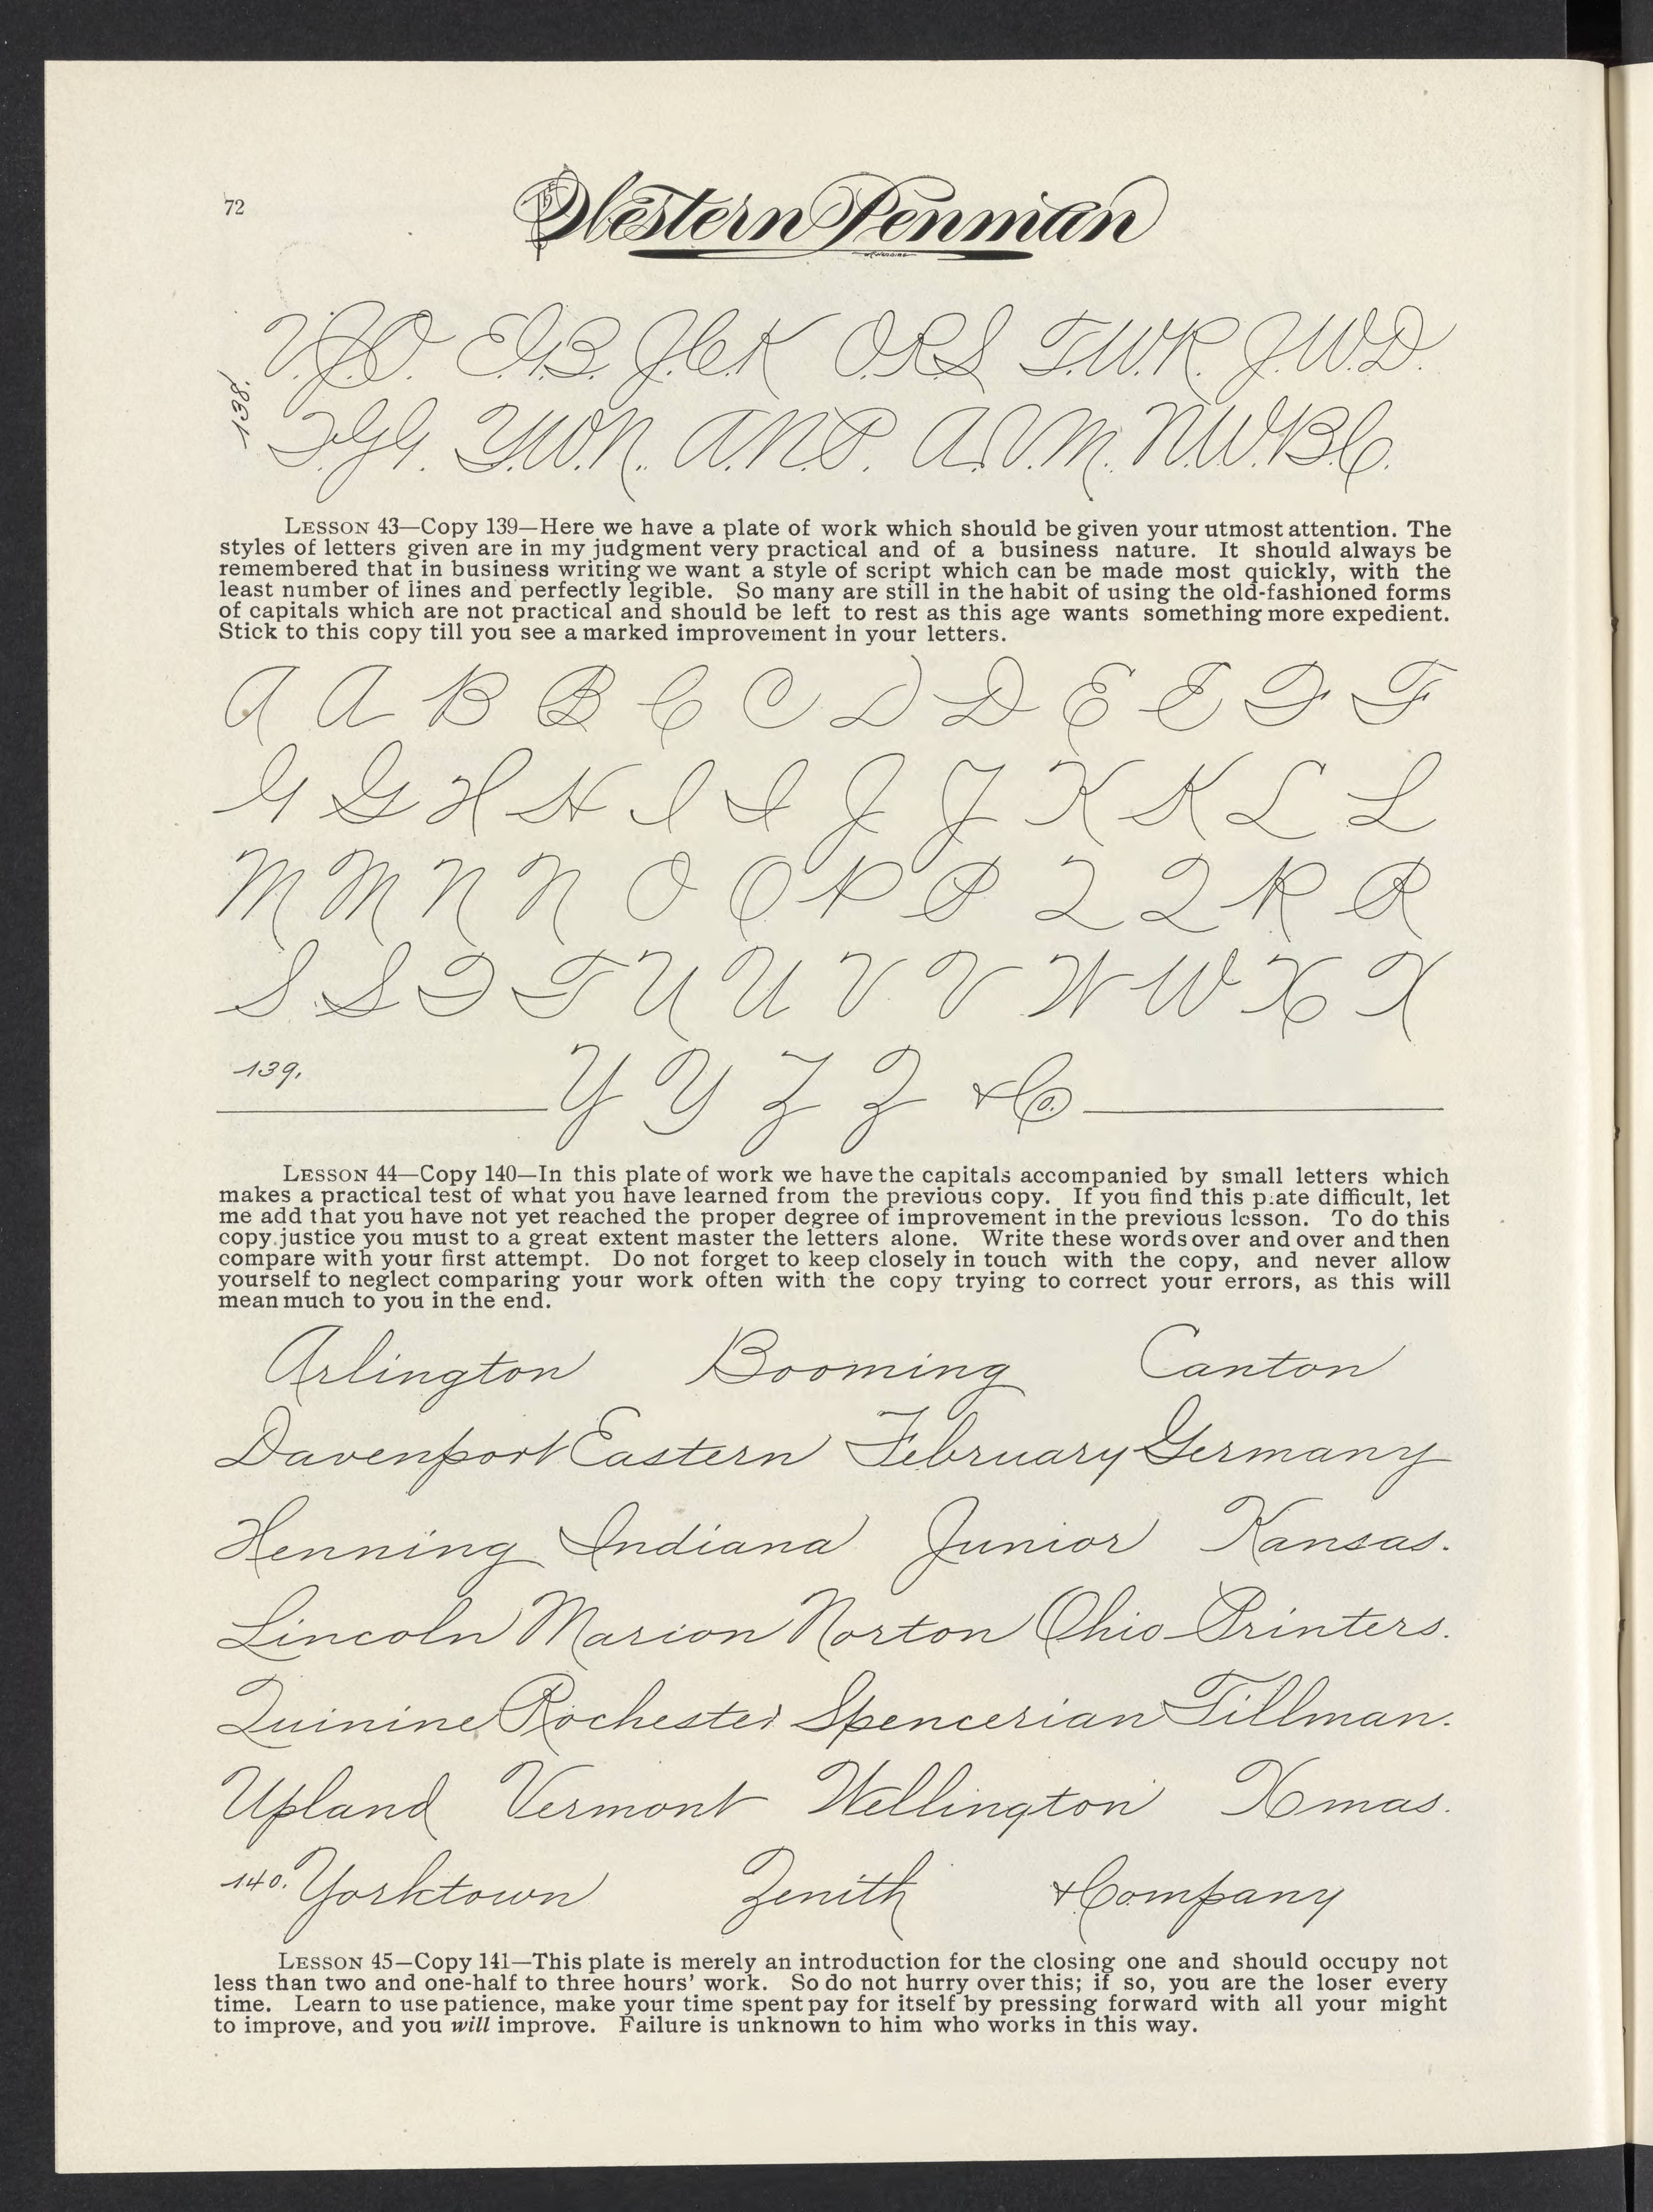 72
The Western Penman
138.
LESSON 43—Copy 139—Here we have a plate of work which should be given your utmost attention. The
styles of letters given are in my judgment very practical and of a business nature. It should always be
remembered that in business writing we want a style of script which can be made most quickly, with the
least number of lines and perfectly legible. So many are still in the habit of using the old-fashioned forms
of capitals which are not practical and should be left to rest as this age wants something more expedient.
Stick to this copy till you see a marked improvement in your letters.
A A B B C C D D E E F F
G G H H I I J J K K L L
M M N N O O P P Q Q R R
S S T T U U V V W W X X
139. Y Y Z Z & Co.
LESSON 44—Copy 140—In this plate of work we have the capitals accompanied by small letters which
makes a practical test of what you have learned from the previous copy. If you find this p:ate difficult, let
me add that you have not yet reached the proper degree of improvement in the previous lesson. To do this
copy justice you must to a great extent master the letters alone. Write these words over and over and then
compare with your first attempt. Do not forget to keep closely in touch with the copy, and never allow
yourself to neglect comparing your work often with the copy trying to correct your errors, as this will
mean much to you in the end.
Arlington Booming Canton
Davenport Eastern February Germany
Henning Indiana Junior Kansas.
Lincoln Marion Norton Ohio Printers.
Quinine Rochester Spencerian Tillman.
Upland Vermont Wellington Xmas.
140. Yorktown Zenith & Company
LESSON 45—Copy 141—This plate is merely an introduction for the closing one and should occupy not
less than two and one-half to three hours' work. So do not hurry over this; if so, you are the loser every
time. Learn to use patience, make your time spent pay for itself by pressing forward with all your might
to improve, and you will improve. Failure is unknown to him who works in this way.